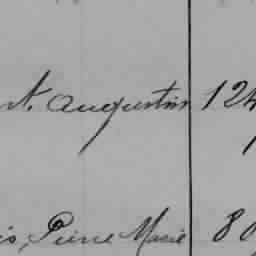 st. Augustin 124
is, Pierre Marie 80